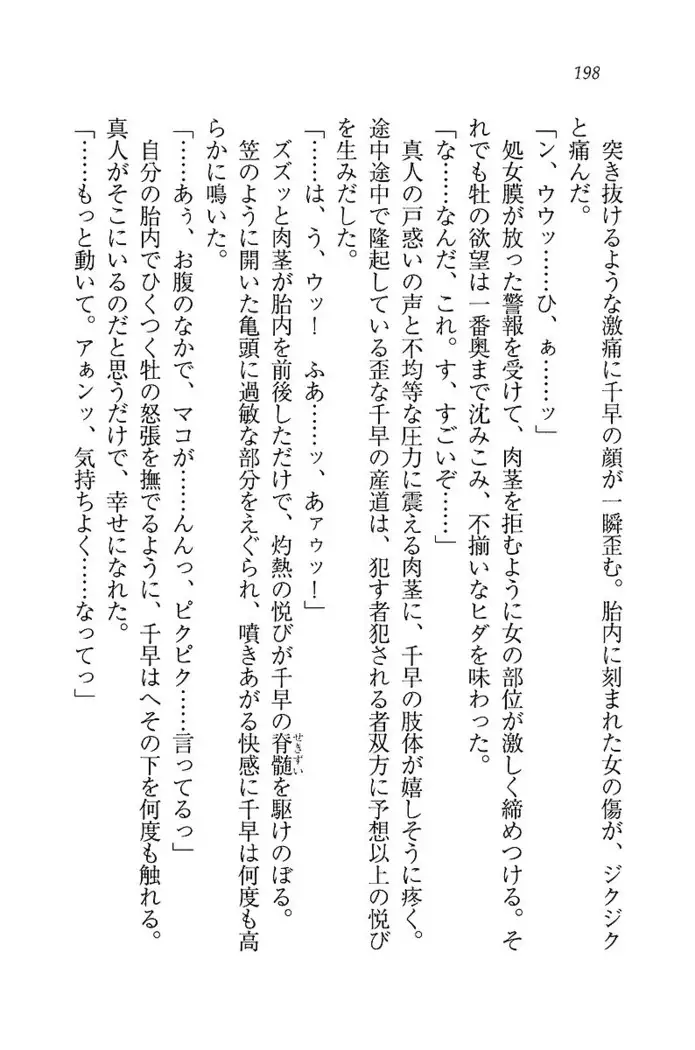 198
突き抜けるような激痛に千早の顔が一瞬歪む。胎内に刻まれた女の傷が、ジクジク
と痛んだ。
「ン、ウウッ……ひ、ぁ……ッ」
処女膜が放った警報を受けて、肉茎を拒むように女の部位が激しく締めつける。そ
れでも牡の欲望は一番奥まで沈みこみ、不揃いなヒダを味わった。
「な……なんだ、これ。す、すごいぞ……」
真人の戸惑いの声と不均等な圧力に震える肉茎に、千早の肢体が嬉しそうに疼く。
途中途中で隆起している歪な千早の産道は、犯す者犯される者双方に予想以上の悦び
を生みだした。
「……は、う、ウッ！　ふあ……ッ、あァゥッ！」
ズズッと肉茎が胎内を前後しただけで、灼熱の悦びが千早の脊髄を駆けのぼる。
せきずい
笠のように開いた亀頭に過敏な部分をえぐられ、噴きあがる快感に千早は何度も高
らかに鳴いた。
「……あぅ、お腹のなかで、マコが……んんっ、ピクピク……言ってるっ」
自分の胎内でひくつく牡の怒張を撫でるように、千早はへその下を何度も触れる。
真人がそこにいるのだと思うだけで、幸せになれた。
「……もっと動いて。アぁンッ、気持ちよく……なってっ」